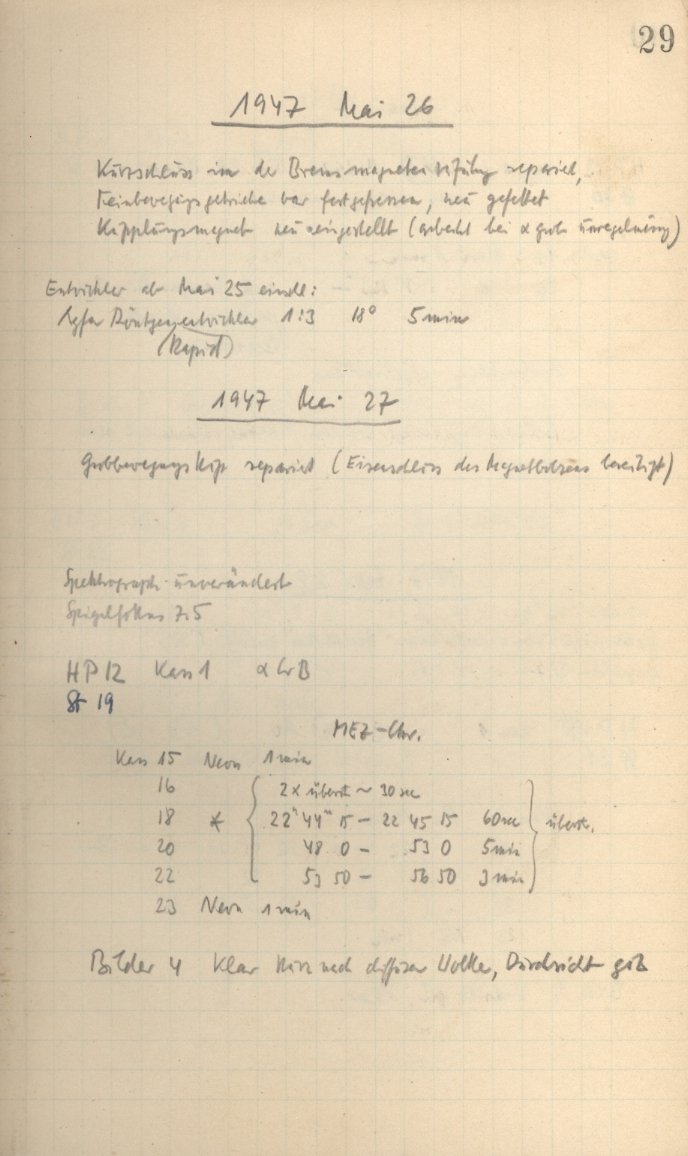 29
1947 Mai 26
Kurzschluss in der Bremsmagneten repariert,
Feinbewegungsgetriebe war festgefressen, neu gefettet
Kupplungsmagnet neu eingestellt (arbeitet bei α grob unregelmässig)
Entwickler ab Mai 25 einschl:
Agfa Röntgenentwickler 1:3 18° 5 min
(Rapid)
1947 Mai 27
Grobbewegung Kupp repariert (Eisenschluss des Magnetbolzens beseitigt)
Spektrograph unverändert
Spiegelfokus 7.5
HP 12 Kass 1 α CrB
St 19
MEZ-Chr.
Kass 15 Neon 1 min
16 2x überst ~ 30 sec
18 * 22ʰ 44ᵐ 15 - 22 45 15 60 sec überst.
20 48 0 - 53 0 5 min
22 53 50 - 56 50 3 min
23 Neon 1 min
Bilder 4 Klar kurz nach diffuser Wolke, Durchsicht gut